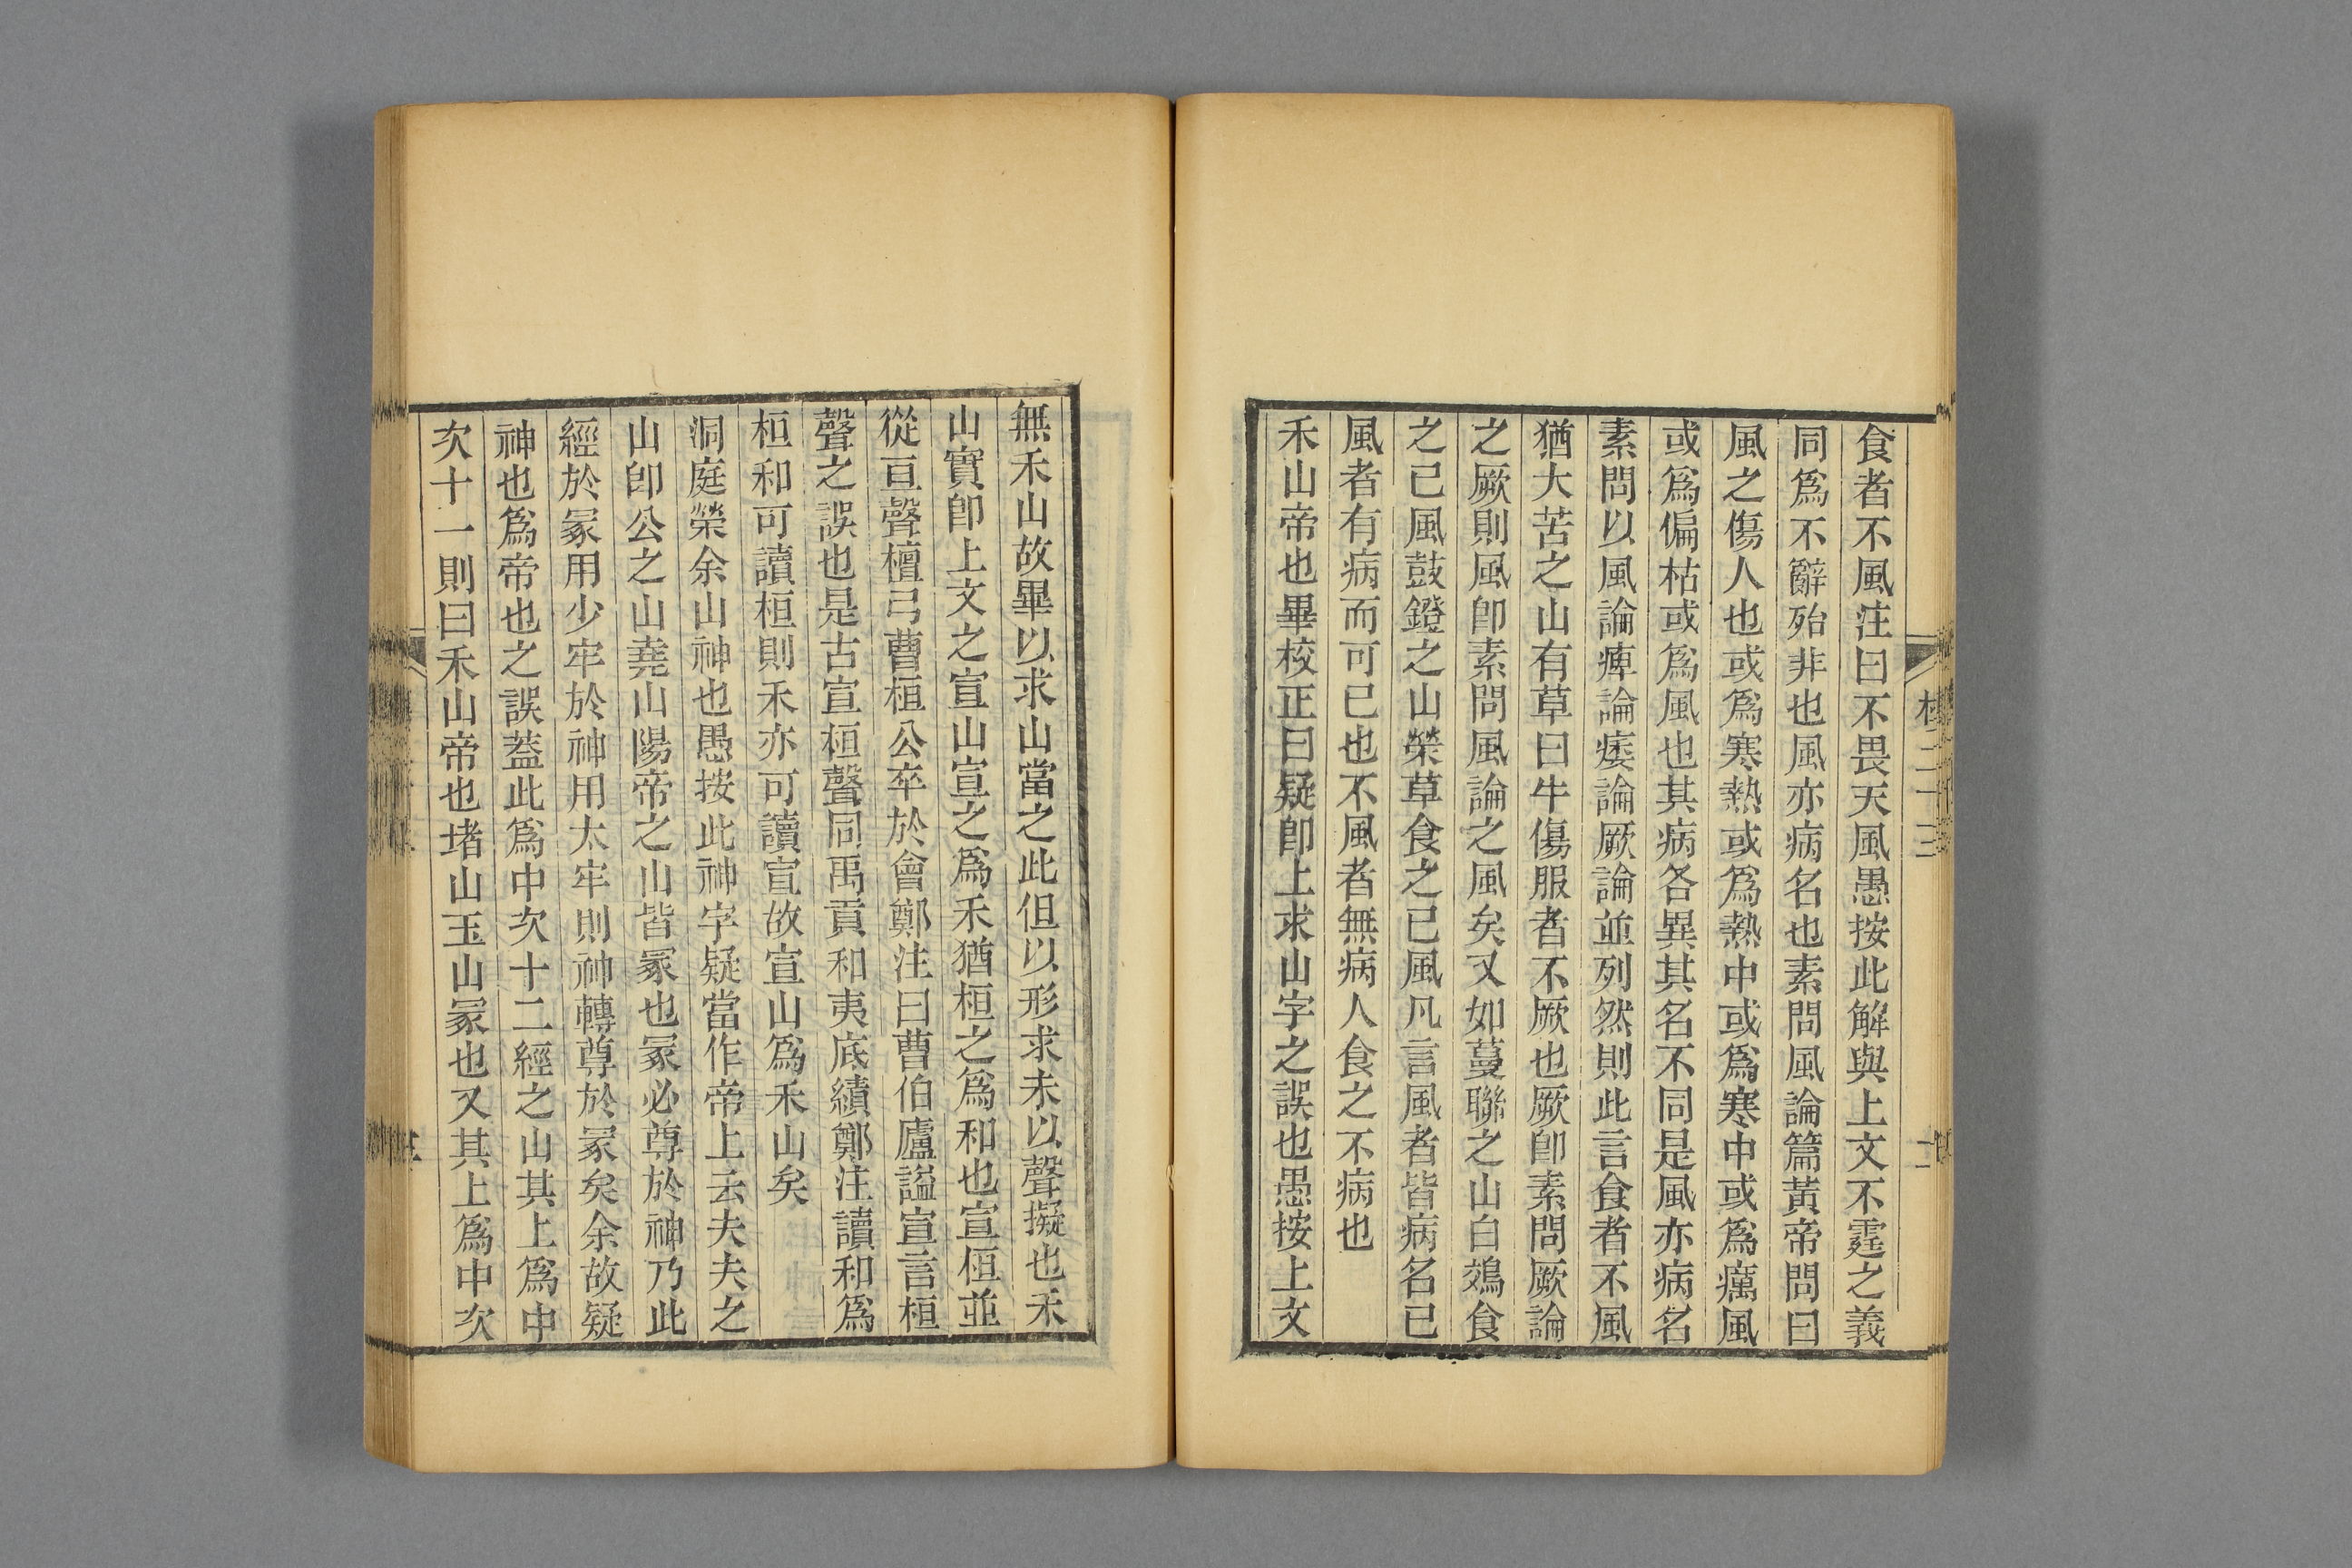 食者不風注曰不畏天風愚按此解與上文不霆之義
同爲不辭殆非也風亦病名也素問風論篇黃帝問曰
風之傷人也或爲寒熱或爲熱中或爲寒中或爲癘風
或爲偏枯或爲風也其病各異其名不同是風亦病名
素問以風論痺論痿論厥論並列然則此言食者不風
猶大苦之山有草曰牛傷服者不厥也厥卽素問厥論
之厥則風卽素問風論之風矣又如蔓聯之山白鵁食
之已風鼓鐙之山榮草食之已風凡言風者皆病名已
風者有病而可已也不風者無病人食之不病也
禾山帝也畢校正曰疑卽上求山字之誤也愚按上文
無禾山故畢以求山當之此但以形求未以聲擬也禾
山實卽上文之宣山宣之爲禾猶桓之爲和也宣桓並
從亘聲檀弓曹桓公卒於會鄭注曰曹伯廬謚宣言桓
聲之誤也是古宣桓聲同禹貢和夷底績鄭注讀和爲
桓和可讀桓則禾亦可讀宣故宣山爲禾山矣
洞庭榮余山神也愚按此神字疑當作帝上云夫夫之
山卽公之山堯山陽帝之山皆冢也冢必尊於神乃此
經於冢用少牢於神用太牢則神轉尊於冢矣余故疑
神也爲帝也之誤蓋此爲中次十二經之山其上爲中
次十一則曰禾山帝也堵山玉山冢也又其上爲中次